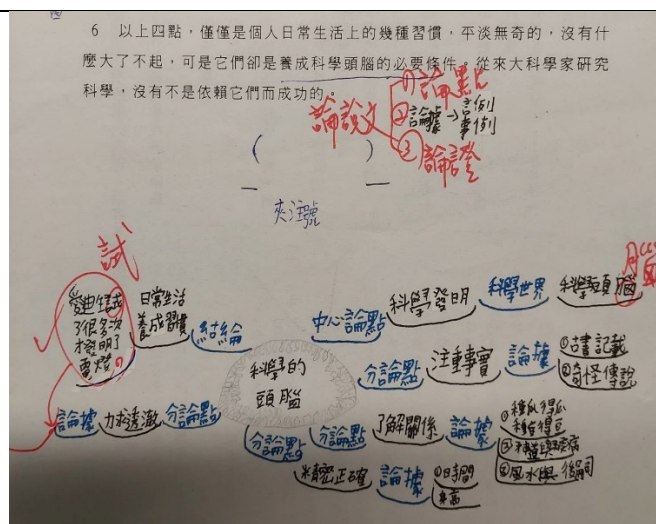 6 以上四點，僅僅是個人日常生活上的幾種習慣，平淡無奇的，沒有什
麼大了不起，可是它們卻是養成科學頭腦的必要條件。從來大科學家研究
科學，沒有不是依賴它們而成功的。
論說文
①論點
②論據→言例
事例
③論證
(  )
夾注號
試
腦
愛迪生試
了很多次
才發明了
電燈。
日常生活
養成習慣
結綸
中心論點
科學發明
科學世界
科學頭腦
科學的
頭腦
分論點
注重事實
論據
①書記載
②奇怪傳說
論據
力求透澈
分論點
分論點
了解關係
論據
①種瓜得瓜
種豆得豆
④風水與
分論點
精密正確
論據
①時間